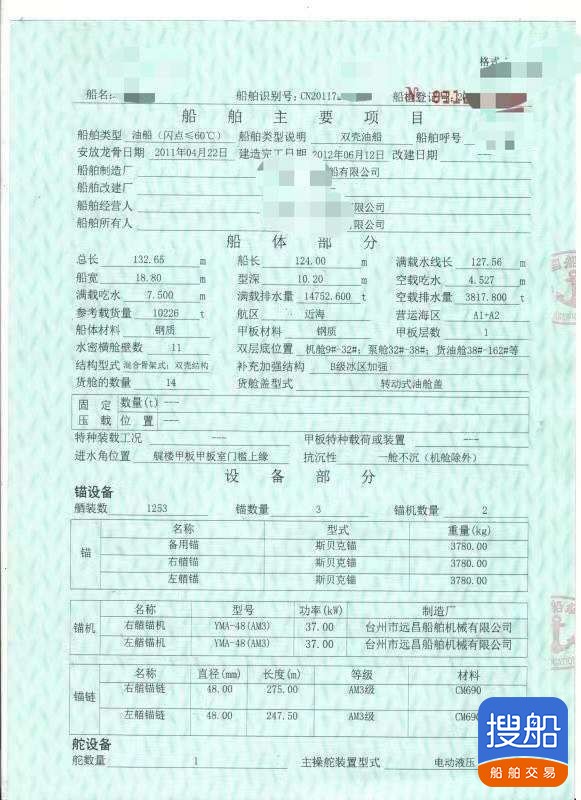 格式:
船名: 船舶识别号: CN20117 船舶登记号:
船舶主要项目
船舶类型 油船（闪点≤60℃） 船舶类型说明 双壳油船 船舶呼号
安放龙骨日期 2011年04月22日 建造完工日期 2012年06月12日 改建日期 ---
船舶制造厂 船有限公司
船舶改建厂
船舶经营人 限公司
船舶所有人 有限公司
船体部分
总长 132.65 m 船长 124.00 m 满载水线长 127.56 m
船宽 18.80 m 型深 10.20 m 空载吃水 4.527 m
满载吃水 7.500 m 满载排水量 14752.600 t 空载排水量 3817.800 t
参考载货量 10226 t 航区 近海 营运海区 A1+A2
船体材料 钢质 甲板材料 钢质 甲板层数 1
水密横舱壁数 11 双层底位置 机舱9#-32#; 泵舱32#-38#; 货油舱38#-162#等
结构型式 混合骨架式; 双壳结构 补充加强结构 B级冰区加强
货舱的数量 14 货舱盖型式 转动式油舱盖
固定压载 数量(t) ---
位置 ---
特种装载工况 --- 甲板特种载荷或装置 ---
进水角位置 艉楼甲板甲板室门槛上缘 抗沉性 一舱不沉（机舱除外）
设备部分
锚设备
舾装数 1253 锚数量 3 锚机数量 2
锚 名称 型式 重量(kg)
备用锚 斯贝克锚 3780.00
右艏锚 斯贝克锚 3780.00
左艏锚 斯贝克锚 3780.00
锚机 名称 型号 功率(kW) 制造厂
右艏锚机 YMA-48(AM3) 37.00 台州市远昌船舶机械有限公司
左艏锚机 YMA-48(AM3) 37.00 台州市远昌船舶机械有限公司
锚链 名称 直径(mm) 长度(m) 等级 材料
右艏锚链 48.00 275.00 AM3级 CM690
左艏锚链 48.00 247.50 AM3级 CM690
舵设备
舵数量 1 主操舵装置型式 电动液压
搜船
船舶交易